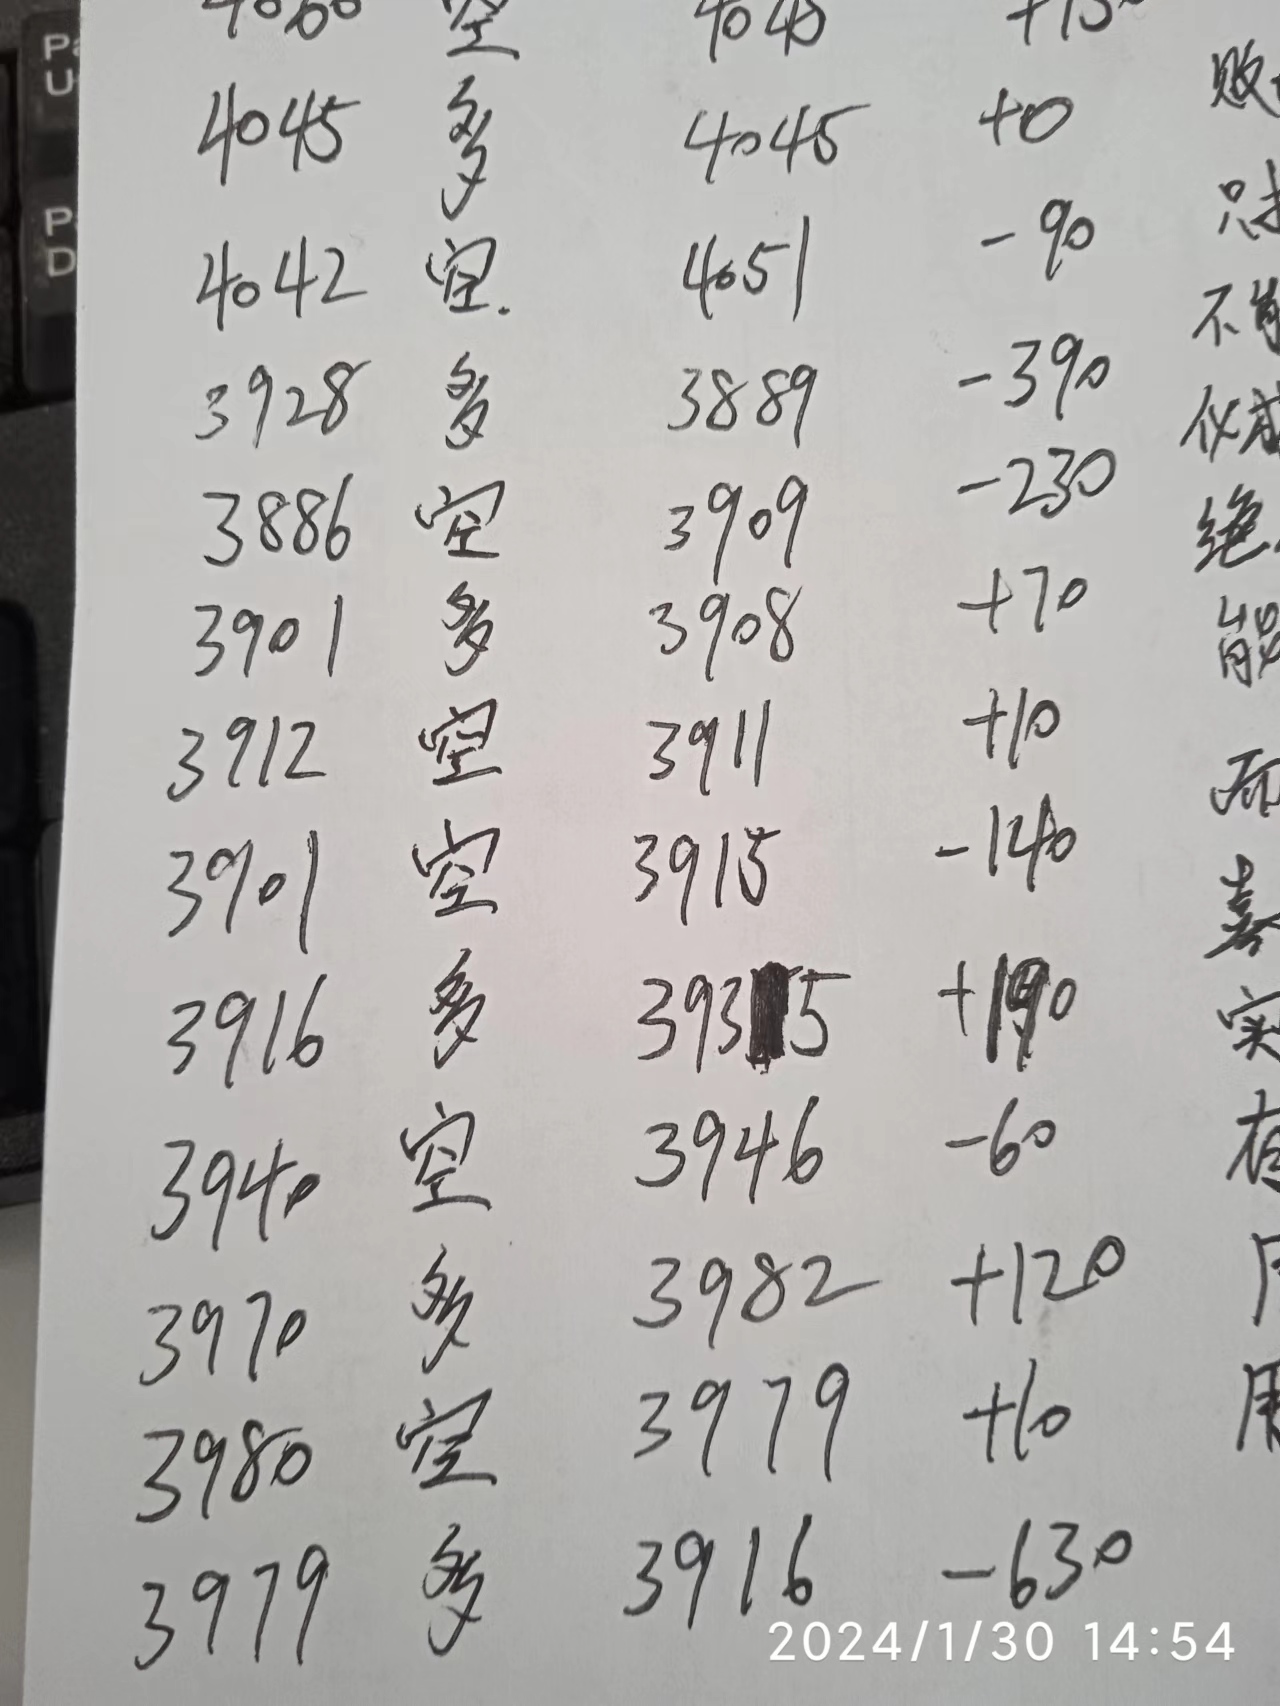 4060 空 4045 +150
4045 多 4045 +0
4042 空. 4051 -90
3928 多 3889 -390
3886 空 3909 -230
3901 多 3908 +70
3912 空 3911 +10
3901 空 3915 -140
3916 多 3935 +190
3940 空 3946 -60
3970 多 3982 +120
3980 空 3979 +10
3979 多 3916 -630
败
只
不能
仅
绝
能
而
喜
实
有
用
2024/1/30 14:54